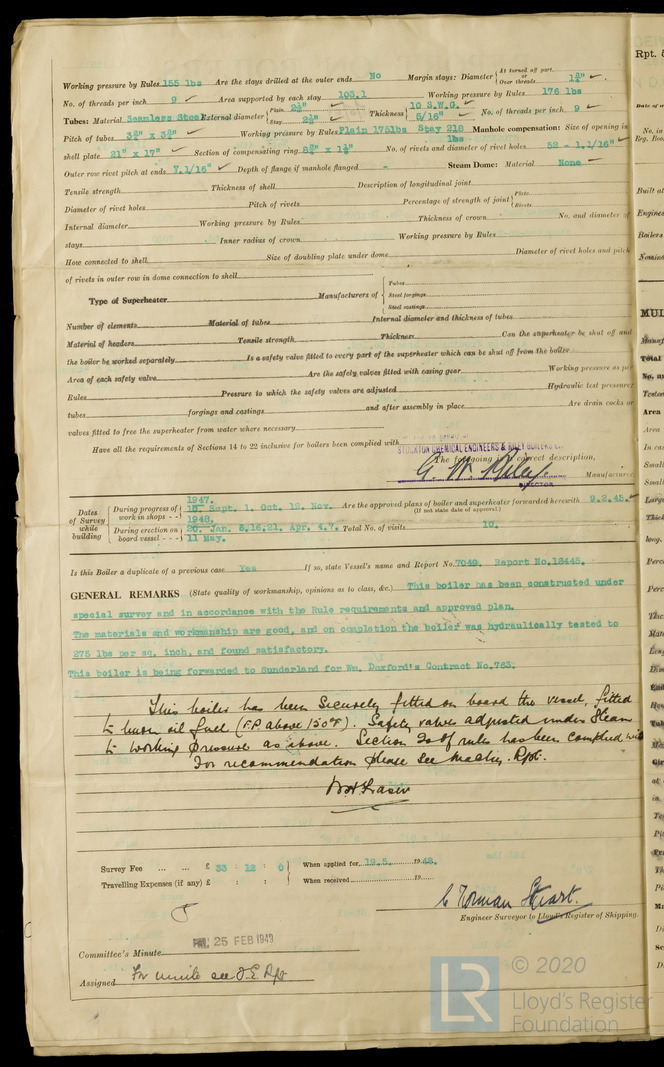 Working pressure by Rules 155 lbs Are the stays drilled at the outer ends No Margin stays: Diameter { At turned off part, or Over threads 1¾"
No. of threads per inch 9 Area supported by each stay 103.1 Working pressure by Rules 176 lbs
Tubes: Material Seamless Steel External diameter { Plain 2½" Stay 2½" Thickness { 10 S.W.G. 5/16" No. of threads per inch 9
Pitch of tubes 3¾" x 3¾" Working pressure by Rules Plain 175lbs Stay 218 lbs Manhole compensation: Size of opening in
shell plate 21" x 17" Section of compensating ring No. of rivets and diameter of rivet holes 52 - 1.1/16"
Outer row rivet pitch at ends 7.1/16" Depth of flange if manhole flanged - Steam Dome: Material None
Tensile strength Thickness of shell Description of longitudinal joint
Diameter of rivet holes Pitch of rivets Percentage of strength of joint { Plate Rivets
Internal diameter Working pressure by Rules Thickness of crown No. and diameter of
stays Inner radius of crown Working pressure by Rules
How connected to shell Size of doubling plate under dome Diameter of rivet holes and pitch
of rivets in outer row in dome connection to shell
Type of Superheater Manufacturers of { Tubes Steel forgings Steel castings
Number of elements Material of tubes Internal diameter and thickness of tubes
Material of headers Tensile strength Thickness Can the superheater be shut off and
the boiler be worked separately Is a safety valve fitted to every part of the superheater which can be shut off from the boiler
Area of each safety valve Are the safety valves fitted with easing gear Working pressure as per
Rules Pressure to which the safety valves are adjusted Hydraulic test pressure
tubes forgings and castings and after assembly in place Are drain cocks or
valves fitted to free the superheater from water where necessary
Have all the requirements of Sections 14 to 22 inclusive for boilers been complied with
STOCKTON CHEMICAL ENGINEERS & RILEY BOILERS
The foregoing is a correct description,
G W Riley Manufacturer
DIRECTOR
Dates of Survey while building { During progress of work in shops - - { 1947. 15. Sept. 1. Oct. 12. Nov. Are the approved plans of boiler and superheater forwarded herewith 9.2.45.
(If not state date of approval.)
1948.
During erection on board vessel - - - { 20. Jan. 5,16,21, Apr. 4.7. 11 May. Total No. of visits 10.
Is this Boiler a duplicate of a previous case Yes If so, state Vessel's name and Report No. 7049. Report No.18445.
GENERAL REMARKS (State quality of workmanship, opinions as to class, &c.) This boiler has been constructed under
special survey and in accordance with the Rule requirements and approved plan.
The materials and workmanship are good, and on completion the boiler was hydraulically tested to
275 lbs per sq. inch, and found satisfactory.
This boiler is being forwarded to Sunderland for Wm. Doxford's Contract No.763.
This boiler has been securely fitted on board the vessel, fitted
to burn oil fuel (F.P. above 150°F). Safety valves adjusted under steam
to working pressure as above. Section 20 of rules has been complied with
For recommendation please see Machy. Rpt.
Survey Fee ... ... £ 33 : 12 : 0 } When applied for, 12.5. 1948.
Travelling Expenses (if any) £ : : } When received 19
Engineer Surveyor to Lloyd's Register of Shipping.
Committee's Minute FRI. 25 FEB 1949
Assigned For minute see F.E. Rpt
LR © 2020
Lloyd's Register
Foundation
Rpt.